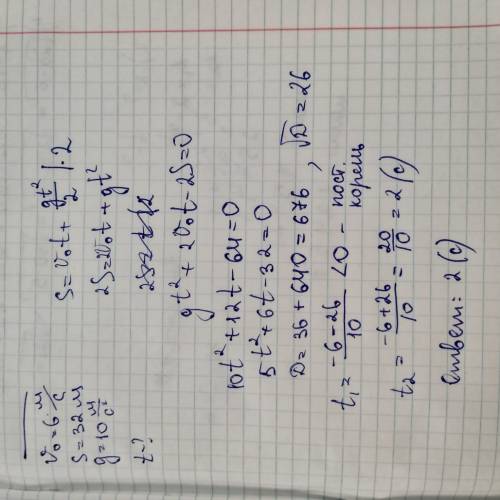 v₀=6 м/с
S=32 м
g=10 м/с²
t-?
S=v₀t+gt²/2 |·2
2S=2v₀t+gt²
gt²+2v₀t-2S=0
10t²+12t-64=0
5t²+6t-32=0
D=36+640=676, √D=26
t₁=(-6-26)/10 <0 - пост. корень
t₂=(-6+26)/10=20/10=2 (с)
Ответ: 2 (с)